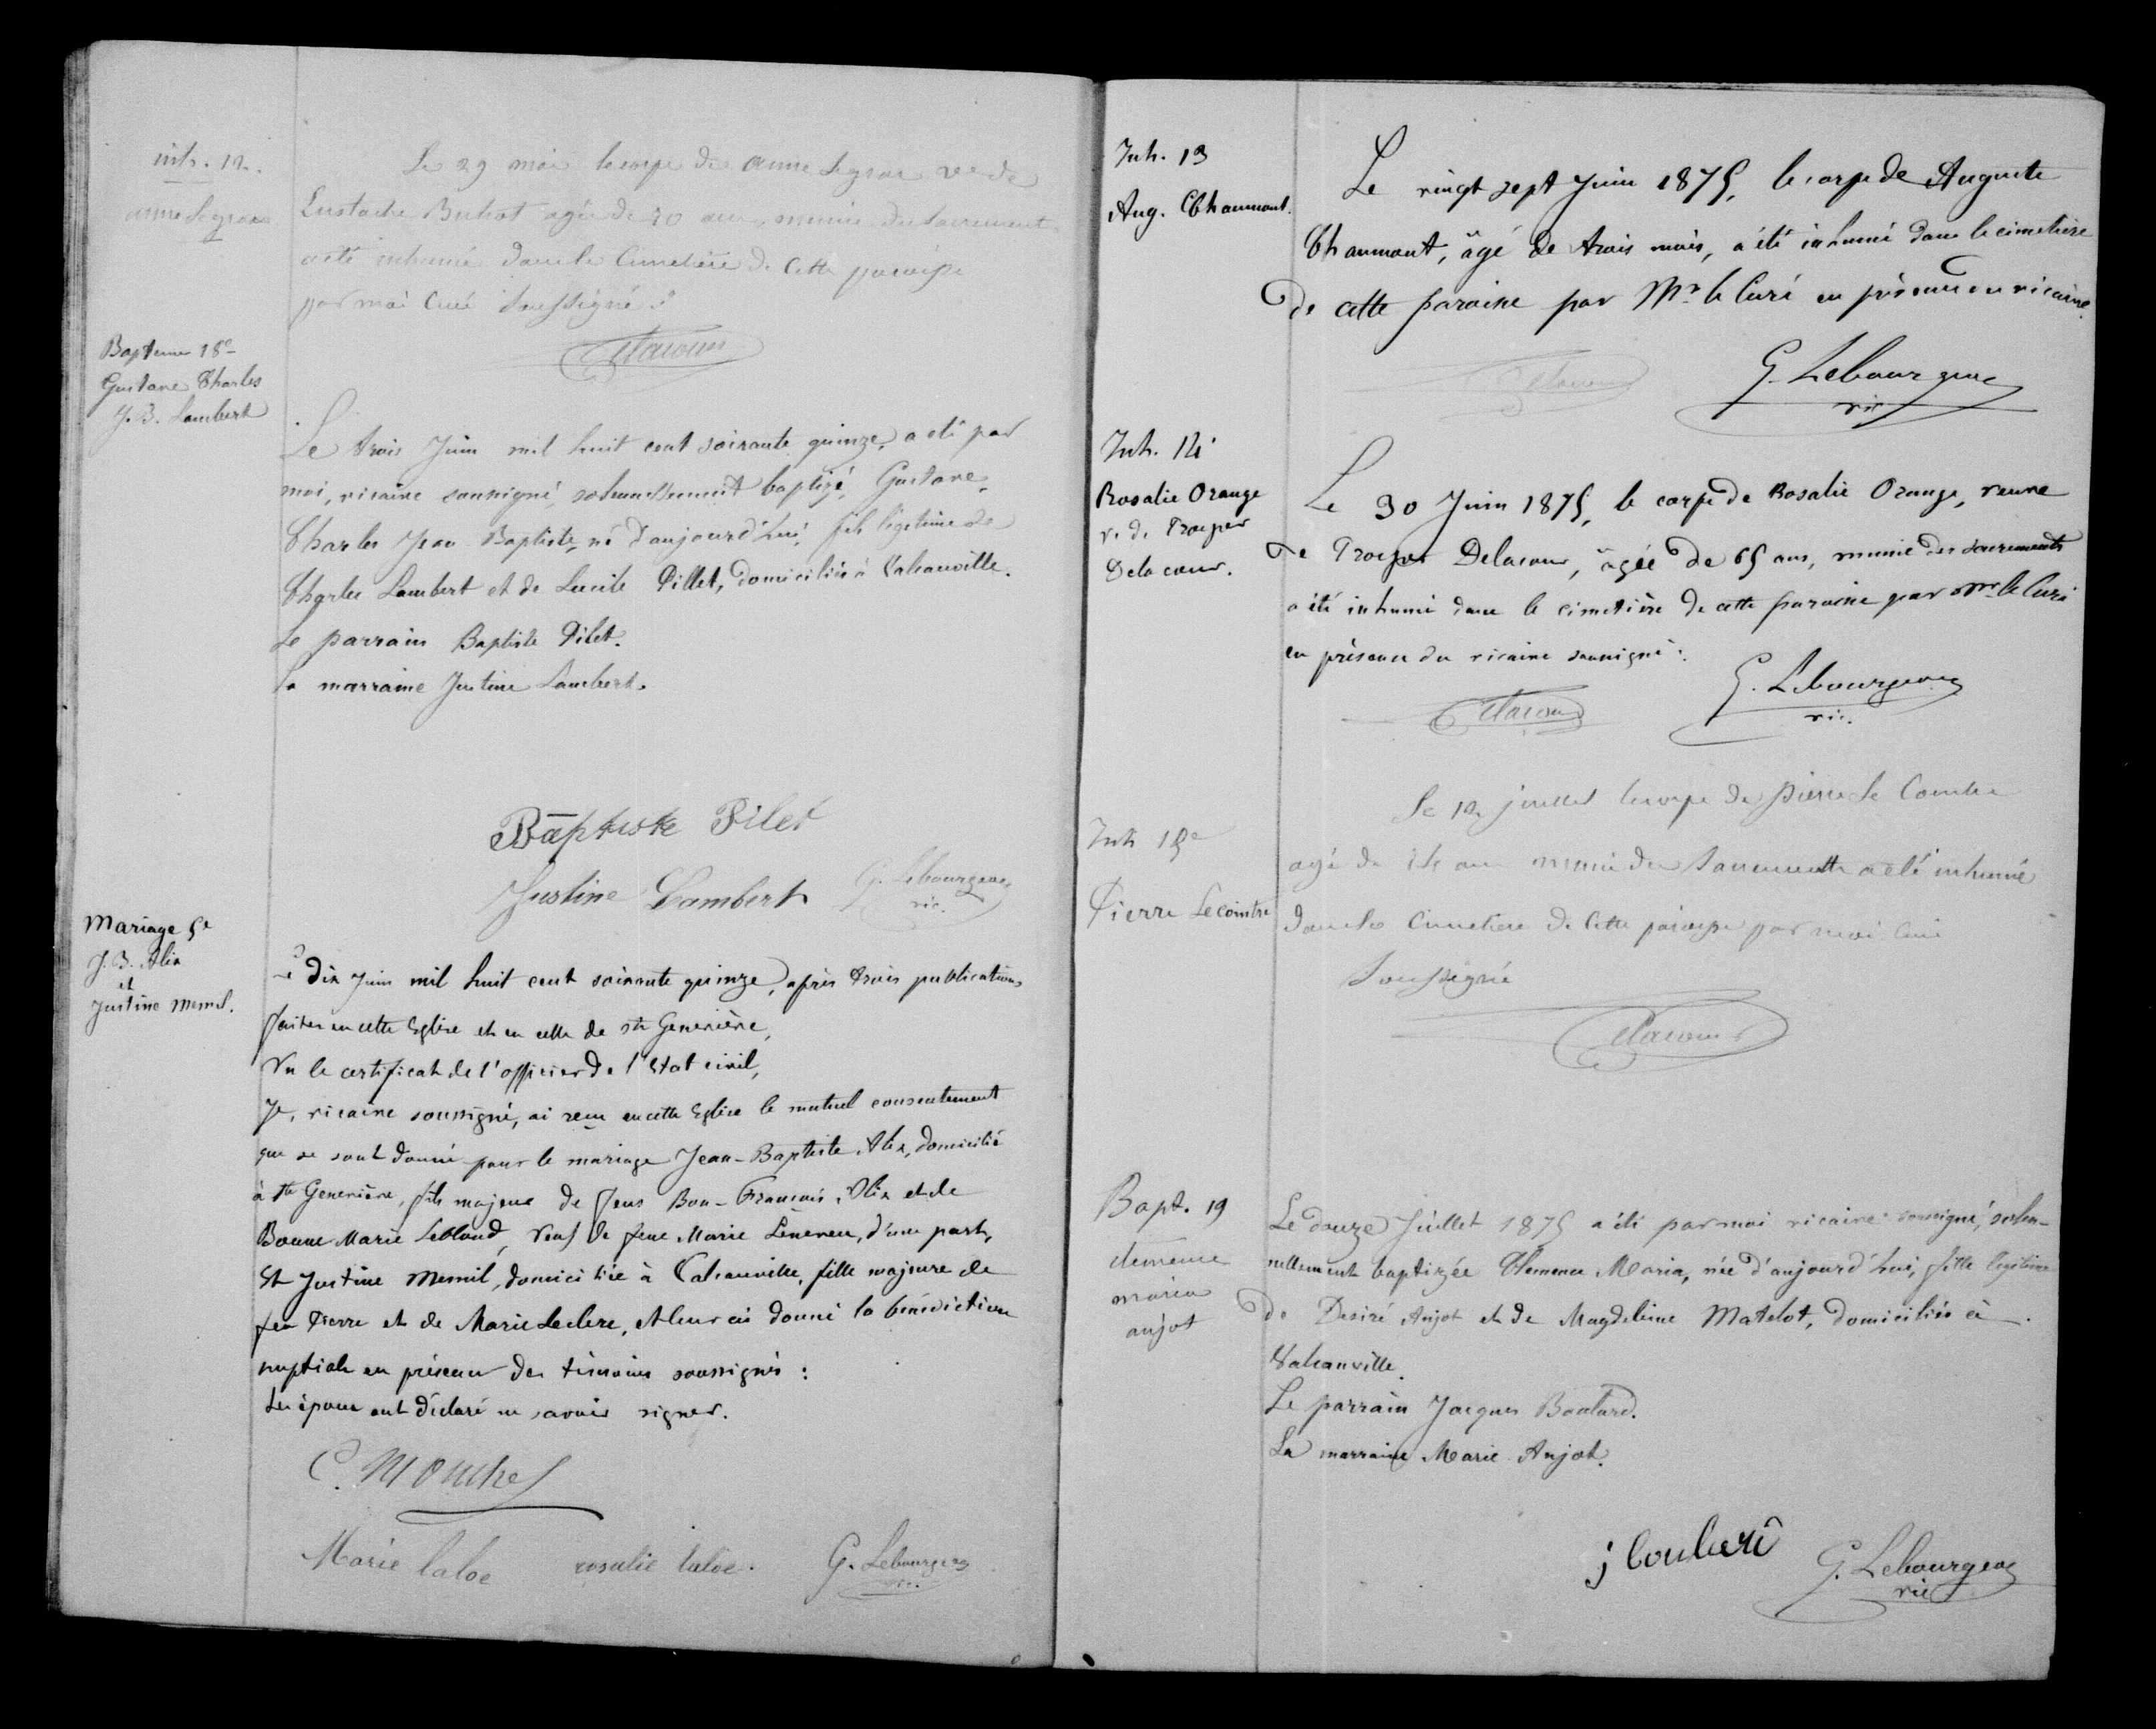 inh. 12.
anne Legros
Le 29 mai le corps de anne Legros ve de
Eustache Buhot agée de 70 ans, munie des Sacrements
a été inhumé dans le Cimetière de Cette paroisse
par moi Curé Soussigné :
Delacour
Bapteme 18e
Gustave Charles
J. B. Lambert
Le trois Juin mil huit cent soixante quinze, a été par
moi, vicaire soussigné, solennellement baptizé, Gustave,
Charles Jean Baptiste, né d'aujourd'hui, fils légitime de
Charles Lambert et de Lucile Pillet, domiciliés à Valcanville.
Le parrain Baptiste Pilet.
La marraine Justine Lambert.
Baptiste Pilet
Justine Lambert
G. Lebourgeois
vic.
Mariage 5e
J. B. Alix
et
Justine Mesnil.
Le dix Juin mil huit cent soixante quinze, après trois publications
faites en cette Eglise et en celle de Ste Geneviève,
Vu le certificat de l'officier de l'Etat civil,
Je, vicaire soussigné, ai reçu en cette Eglise le mutuel consentement
que se sont donné pour le mariage Jean-Baptiste Alix, domicilié
à Ste Geneviève, fils majeur de feus Bon-François Alix et de
Bonne Marie Leblond, veuf de feue Marie Leneveu, d'une part,
Et Justine Mesnil, domiciliée à Valcanville, fille majeure de
feu Pierre et de Marie Leclerc, et leur ai donné la bénédiction
nuptiale en présence des témoins soussignés :
Les époux ont déclaré ne savoir signer.
C. Mouchel
Marie laloe rosalie laloe. G. Lebourgeois
vic.
Inh. 13
Aug. Chaumont.
Le vingt sept Juin 1875, le corps de Auguste
Chaumont, âgé de trois mois, a été inhumé dans le cimetière
de cette paroisse par Mr le Curé en présence du vicaire.
Delacour
G. Lebourgeois
vic
Inh. 14
Rosalie Orange
v. de Prosper
Delacour.
Le 30 Juin 1875, le corps de Rosalie Orange, veuve
de Prosper Delacour, âgée de 65 ans, munie des sacrements
a été inhumé dans le cimetière de cette paroisse par Mr le Curé
en présence du vicaire soussigné :
Delacour
G. Lebourgeois
vic.
Inh 15e
Pierre Lecointre
Le 12 juillet le corps de pierre Le Cointre
agé de ans muni des Sacrements a été inhumé
dans le Cimetière de Cette paroisse par moi Curé
Soussigné
Delacour
Bapt. 19
clemence
maria
anjot
Le douze Juillet 1875 a été par moi vicaire soussigné, solen-
nellement baptizée Clemence Maria, née d'aujourd'hui, fille légitime
de Desiré Anjot et de Magdeleine Matelot, domiciliés à
Valcanville.
Le parrain Jacques
La marraine Marie Anjot.
G. Lebourgeois
vic